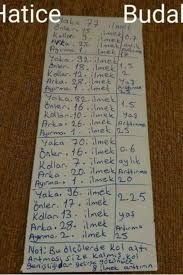 Hatice Budak
Yaka 77 ilmek
Önler. ilmek
Kollar. ilmek 0.7
Arka. 25. ilmek
Ayırma. 1. ilmek
Yaka 92. ilmek 1.5
Önler. 18. ilmek
Kollar. 12. ilmek 2
Arka. 28. ilmek yaş
Ayırma. 1. ilmek
Yaka 82. ilmek 1.5
Önler. 16. ilmek
Kollar. 10. ilmek yaş
Arka. 26. ilmek Artırma
Ayırma. 1. ilmek 25
Yaka 70. ilmek 0.6
Önler. 16. ilmek
Kollar. 7. ilmek aylık
Arka. 20 ilmek Artırma
Ayırma. 1. ilmek 20
Yaka 96. ilmek 2 2.5
Önler. 17. ilmek
Kollar 13. ilmek yaş
Arka. 28. ilmek Artırma
Ayırma. 2. ilmek 25
Not: Bu ölçülerde kol altı
Artması size kalmış kol